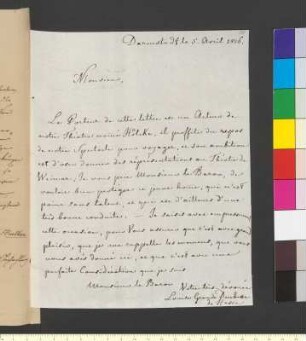 Darmstadt le 5. Avril 1816.
Monsieur,
Le Porteur de cette lettre est un Acteur de
notre Théatre il profite du repos
de notre Spectacle pour voyager, et son ambition
est d'oser donner des représentations au Théatre de
Weimar. Je vous prie Monsieur le Baron, de
vouloir bien protéger ce jeune homme, qui n'est
pas sans talent, et qui est d'ailleurs d'une
très bonne conduite. — Je saisis avec empressement
cette occasion, pour Vous assurer que c'est avec grand
plaisir, que je me rappelle les momens, que vous
nous avés donné ici, et que c'est avec une
parfaite Considération que je suis
Monsieur le Baron
Votre très dévouée
Louise Grande Duchesse
de Hesse